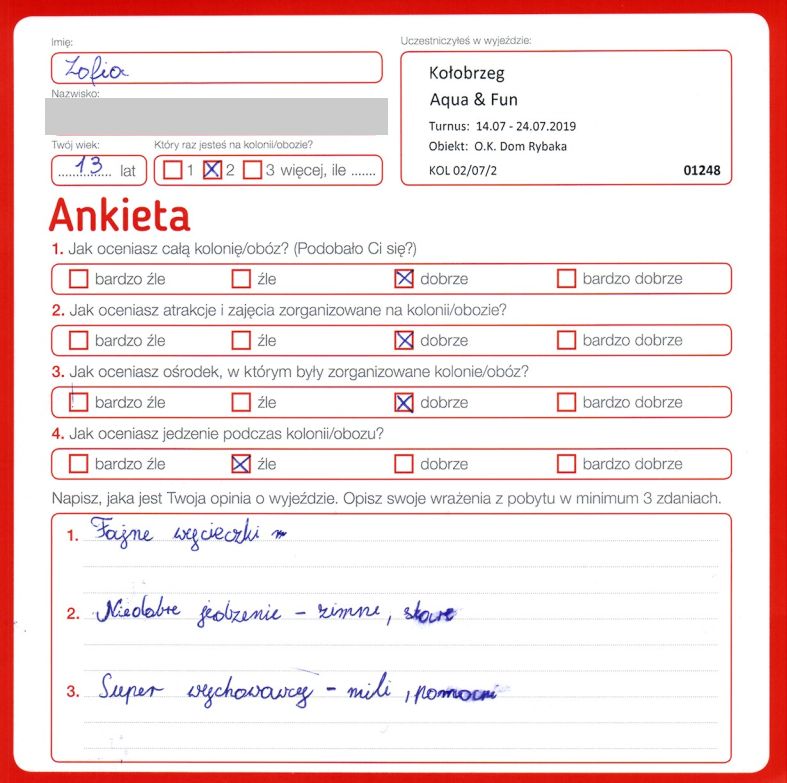 Imię:
Zofia
Nazwisko:
Twój wiek:
13 lat
Który raz jesteś na kolonii/obozie?
1 2 3 więcej, ile .......
Uczestniczyłeś w wyjeździe:
Kołobrzeg
Aqua & Fun
Turnus: 14.07 - 24.07.2019
Obiekt: O.K. Dom Rybaka
KOL 02/07/2 01248
Ankieta
1. Jak oceniasz całą kolonię/obóz? (Podobało Ci się?)
bardzo źle źle dobrze bardzo dobrze
2. Jak oceniasz atrakcje i zajęcia zorganizowane na kolonii/obozie?
bardzo źle źle dobrze bardzo dobrze
3. Jak oceniasz ośrodek, w którym były zorganizowane kolonie/obóz?
bardzo źle źle dobrze bardzo dobrze
4. Jak oceniasz jedzenie podczas kolonii/obozu?
bardzo źle źle dobrze bardzo dobrze
Napisz, jaka jest Twoja opinia o wyjeździe. Opisz swoje wrażenia z pobytu w minimum 3 zdaniach.
1. Fajne wycieczki
2. Niedobre jedzenie - zimne,
3. Super wychowawcy - mili, pomocni